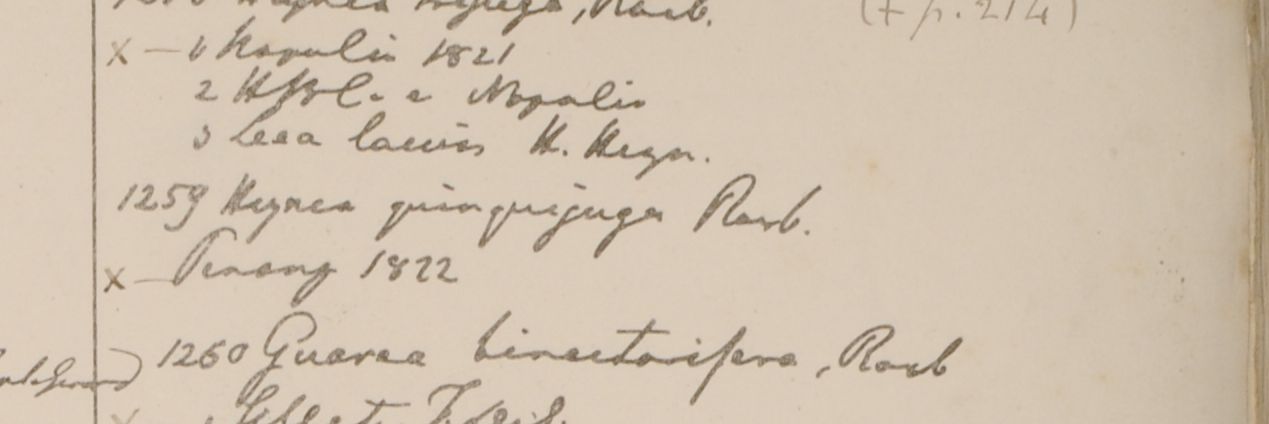 Roxb. (+ p. 214)
x — 1 Napalia 1821
2 HBC. e Napalia
3 Leea laevis H. Heyn.
1259 Heynea quinquijuga Roxb.
x — Penang 1822
1260 Guarea binectarifera, Roxb